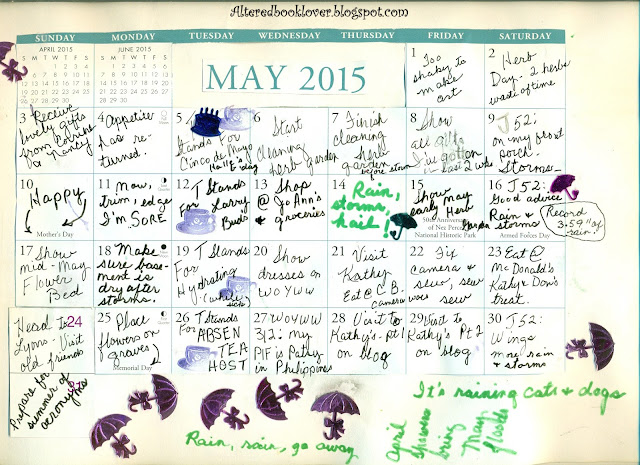 Alteredbooklover.blogspot.com
SUNDAY MONDAY TUESDAY WEDNESDAY THURSDAY FRIDAY SATURDAY
APRIL 2015
S M T W T F S
1 2 3 4
5 6 7 8 9 10 11
12 13 14 15 16 17 18
19 20 21 22 23 24 25
26 27 28 29 30
JUNE 2015
S M T W T F S
1 2 3 4 5 6
7 8 9 10 11 12 13
14 15 16 17 18 19 20
21 22 23 24 25 26 27
28 29 30
MAY 2015
1 Too
shaky to
make
art
2 Herb
Day - 2 herbs
waste of time
3 Receive
lovely gifts
from Corrine
& Nancy
4 Appetite
has re-
turned.
5 T
Stands For
Cinco de Mayo
Halle's day
6 Start
cleaning
herb garden
7 Finish
cleaning
herb
garden
before storm
8 Show
all alts
I've gotten
in last 2 wks
9 J52:
on my front
porch.
Storms
10
Happy
Mother's Day
11 Mow,
trim, edge
I'm SORE
12 T Stands
For Larry
Buds
13 Shop
@ Jo Ann's
& groceries
14 Rain,
storms,
hail!
15 Show
early May
Herb
Garden
50th Anniversary
of Nez Perce
National Historic Park
16 J52:
Good advice
Rain &
storms
Record
3.59" of
rain!
Armed Forces Day
17 Show
mid-May
Flower
Bed
18 Make
sure base-
ment is
dry after
storms.
19 T Stands
For
Hydrating
(while
sick)
20 Show
dresses on
WOYWW
21 Visit
Kathy
Eat @ C.B.
camera woes
22 Fix
camera &
sew, sew
sew
23 Eat @
McDonald's
Kathy & Don's
treat.
Head to 24
Lyons - Visit
old friends
25 Place
flowers on
graves
Memorial Day
26 T Stands
For
ABSEN
TEA
HOST
27 WOYWW
312: my
PIF is Patsy
in Philippines
28 Visit to
Kathy's - Pt 1
on blog
29 Visit to
Kathy's Pt 2
on blog
30 J52:
Wings
more rain
& storms
Prepare for
summer of
acronyms
Rain, rain, go away
It's raining cats & dogs
April
showers
bring
May
floods